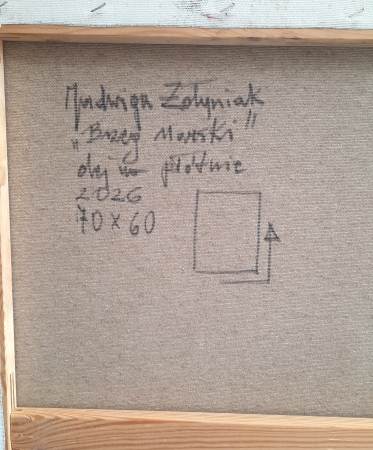 Jadwiga Żołyniak
„Brzeg Morski"
olej na płótnie
2026
70 x 60